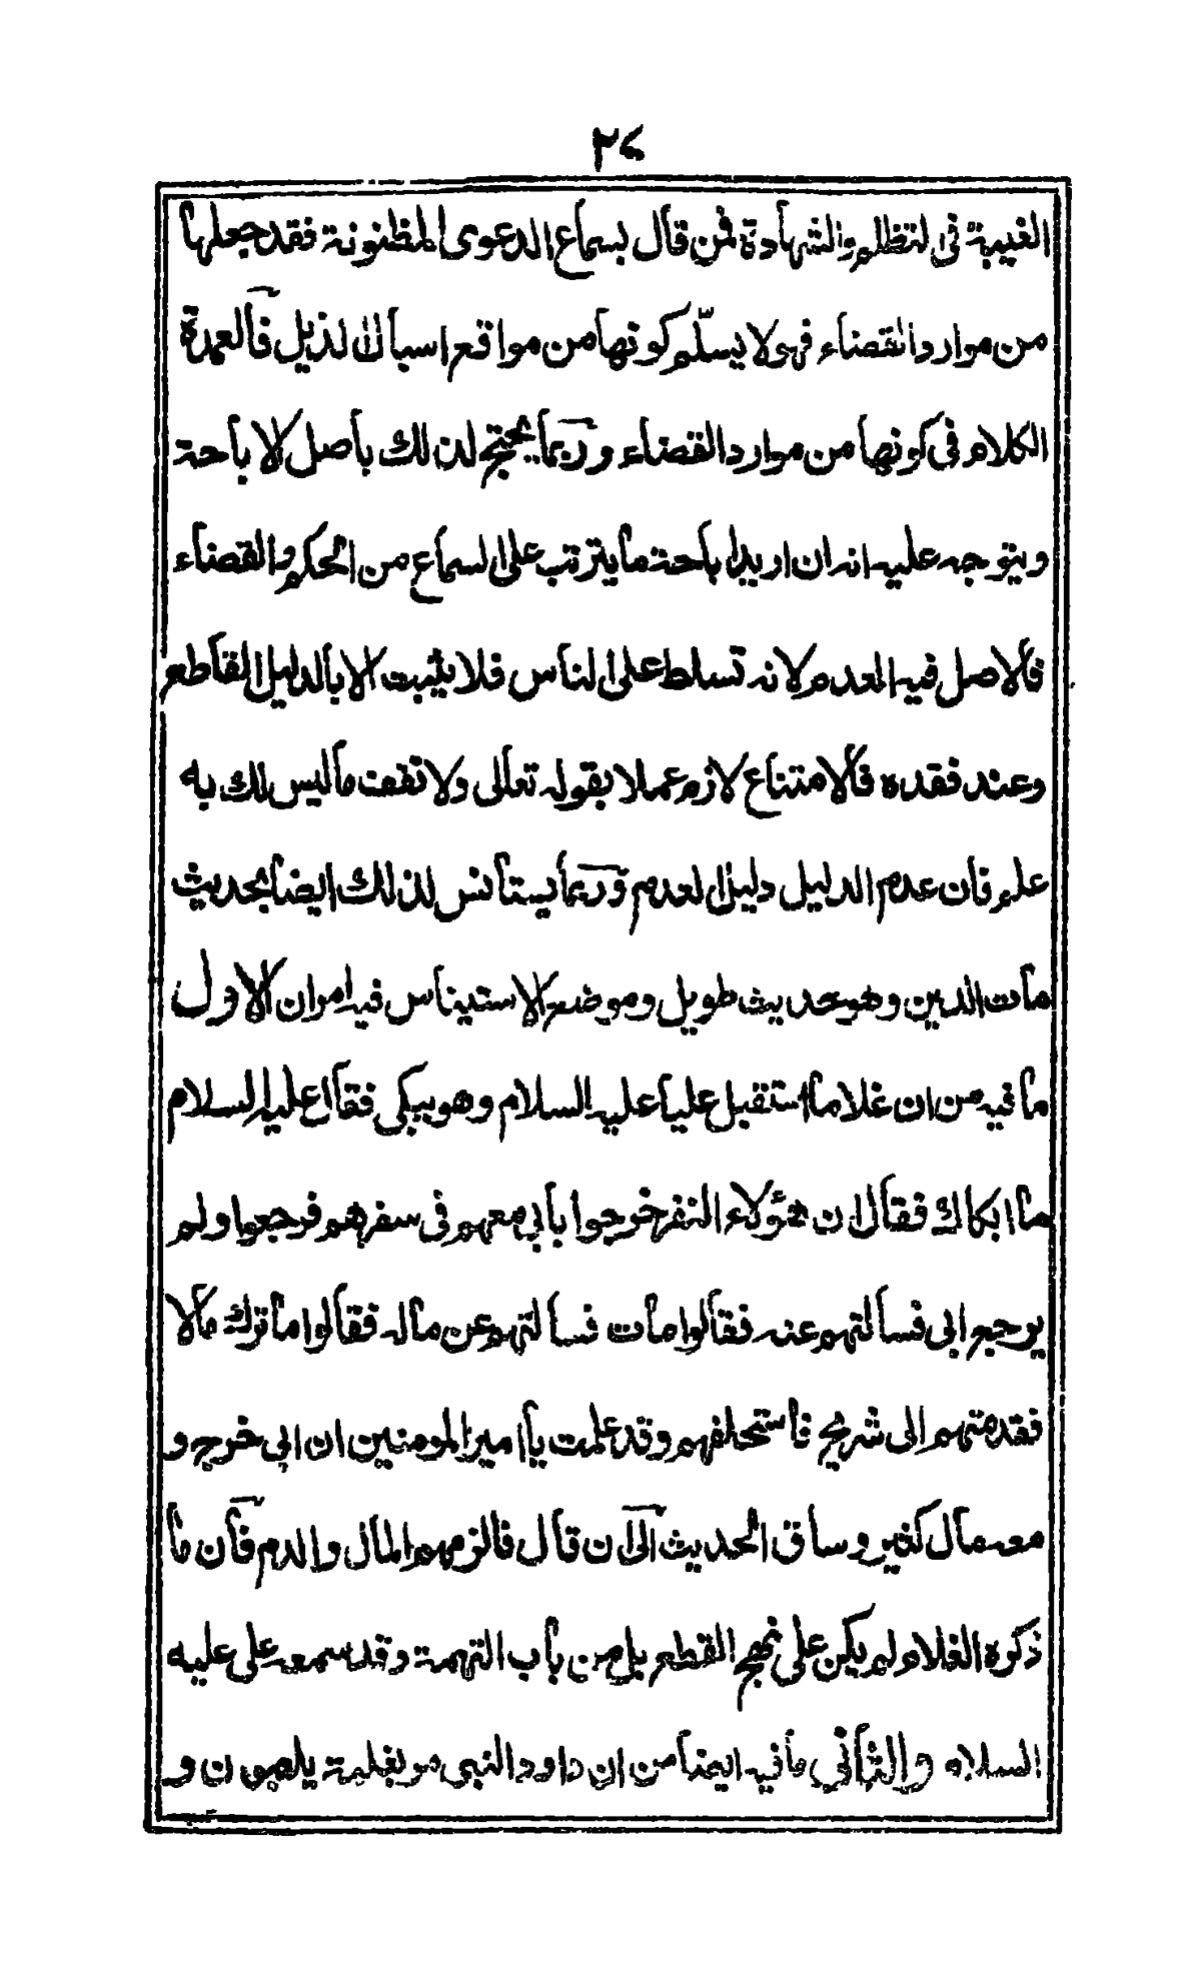 الغيبة فى التظلم والشهادة فمن قال بسماع الدعوى المظنونة فقد جعلها
من موارد القضاء فهو لا يسلّم كونها من مواقع اسبال الذيل فالعمدة
الكلام فى كونها من موارد القضاء وربما يحتج لذلك باصل الاباحة
ويتوجه عليه انه ان اريد اباحة ما يترتب على السماع من الحكم والقضاء
فالاصل فيه العدم لانه تسلط على الناس فلا يثبت الا بالدليل القاطع
وعند فقده فالامتناع لازم عملا بقوله تعالى ولا تقف ما ليس لك به
علم فان عدم الدليل دليل العدم وربما يستانس لذلك ايضا بحديث
مات الدين وهو حديث طويل وموضع الاستيناس فيه امران الاول
ما فيه من ان غلاما استقبل عليا عليه السلام وهو يبكى فقال عليه السلام
ما ابكاك فقال ان هؤلاء النفر خرجوا بابى معهم فى سفرهم فرجعوا ولم
يرجع ابى فسالتهم عنه فقالوا مات فسالتهم عن ماله فقالوا ما ترك مالا
فقدمتهم الى شريح فاستحلفهم وقد علمت يا امير المومنين ان ابى خرج و
معه مال كثير وساق الحديث الى ان قال فالزمهم المال والدم فان ما
ذكره الغلام لم يكن على نهج القطع بل من باب التهمة وقد سمعه على عليه
السلام والثانى ما فيه ايضا من ان داود النبى مر بغلمة يلعبون و